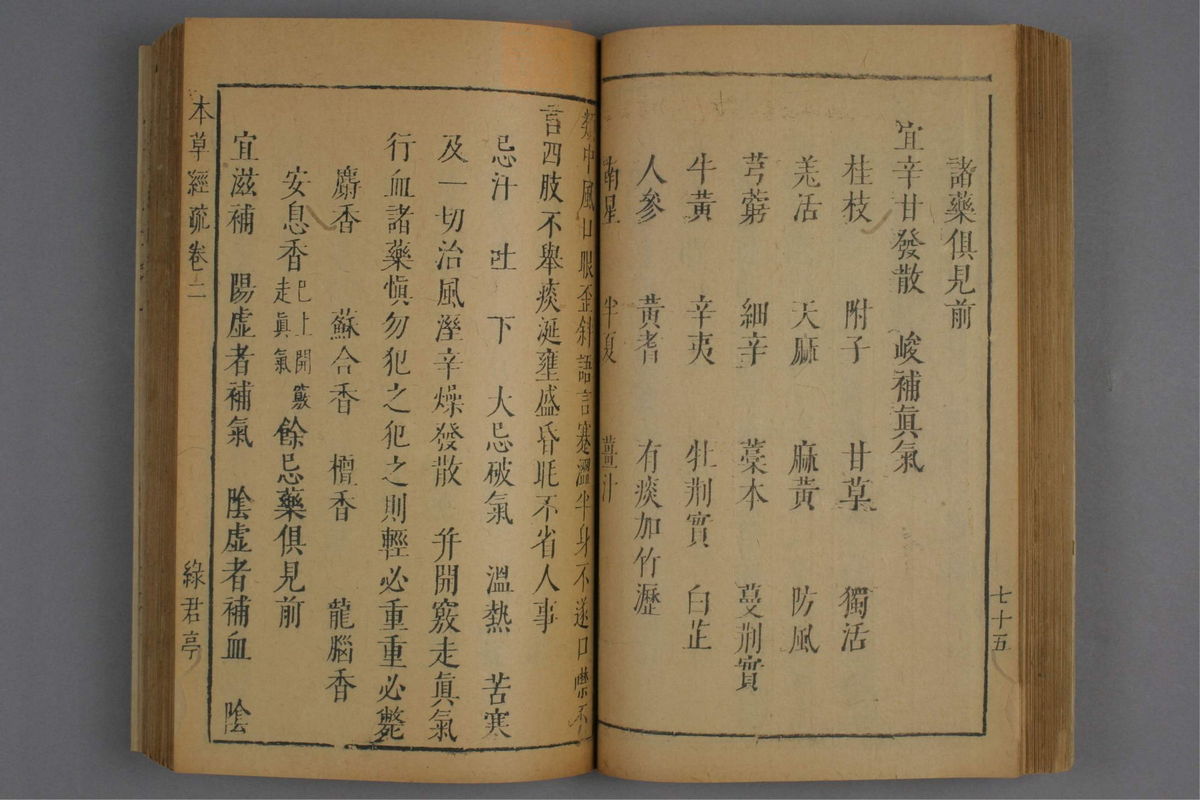 諸藥俱見前
宜辛甘發散　峻補眞氣
桂枝　附子　甘草　獨活
羌活　天麻　麻黃　防風
芎藭　細辛　藁本　蔓荆實
牛黃　辛夷　牡荆實　白芷
人參　黃耆　有痰加竹瀝
南星　半夏　薑汁
七十五
類中風口眼歪斜語言蹇澀半身不遂口噤不
言四肢不舉痰涎壅盛昏眊不省人事
忌汗　吐　下　大忌破氣　溫熱　苦寒
及一切治風溼辛燥發散　并開竅走眞氣
行血諸藥愼勿犯之犯之則輕必重重必斃
麝香　蘇合香　檀香　龍腦香
安息香巳上開竅走眞氣餘忌藥俱見前
宜滋補　陽虛者補氣　陰虛者補血　陰
本草經疏卷二
綠君亭